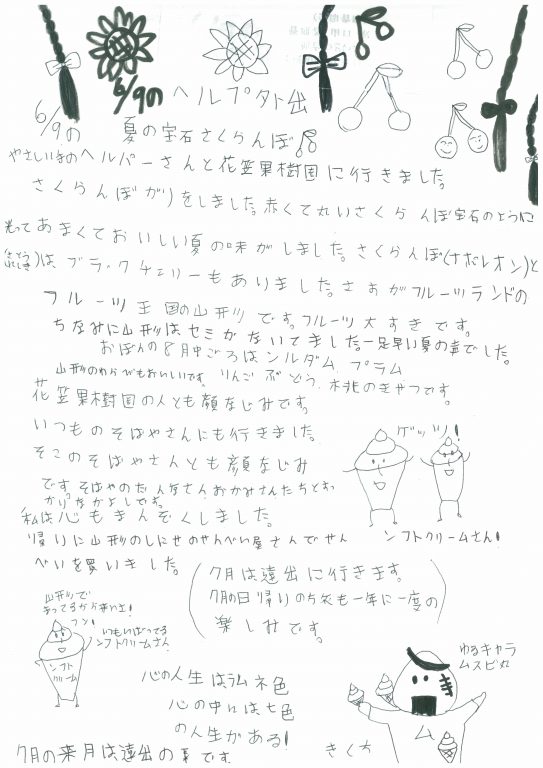 6/9のヘルプタト出
6/9の 夏の宝石さくらんぼ
やさしいきのヘルパーさんと花笠果樹園に行きました。
さくらんぼがりをしました。赤くて丸いさくらんぼ宝石のように
光ってあまくておいしい夏の味がしました。さくらんぼ(ナポレオン)と
(さとうにしき)はブラックチェリーもありました。さすがフルーツランドの
フルーツ王国の山形ツです。フルーツ大すきです。
ちなみに山形はセミがないてました。一足早い夏の声でした。
おぼんの8月中ごろはソルダム、プラム
山形のわらびもおいしいです。りんごぶどう、桃のきせつです。
花笠果樹園の人とも顔なじみです。
いつものそばやさんにも行きました。
そこのそばやさんとも顔なじみ
です。そばやのだんなさんおかみさんたちとすっ
かりなかよしです。
私は心もまんぞくしました。
帰りに山形のしにせのせんべい屋さんでせん
べいを買いました。
ゲッツ!
ソフトクリームさん!
(7月は遠出に行きます。
7月の日帰りの
も一年に一度の
楽しみです。)
山形で
フン!
いつもいばってる
ソフトクリームさん!
ソフト
クリーム
心の人生はラムネ色
心の中には七色
の人生がある!
きくち
ゆるキャラ
ムスビ丸
ム
7月の来月は遠出の夏です